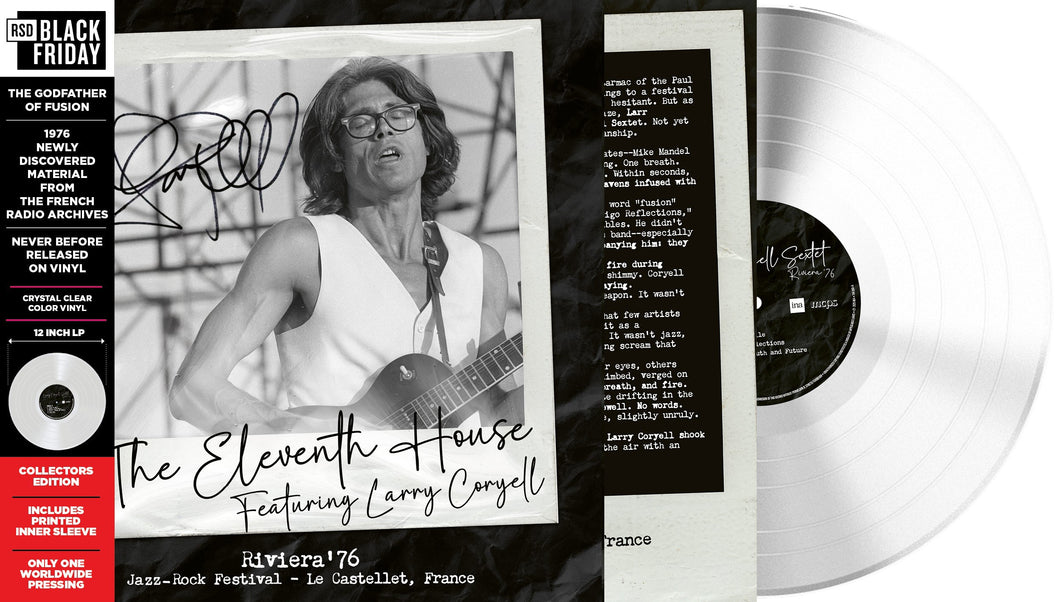 RSD BLACK
FRIDAY
THE GODFATHER
OF FUSION
1976
NEWLY
DISCOVERED
MATERIAL
FROM
THE FRENCH
RADIO ARCHIVES
NEVER BEFORE
RELEASED
ON VINYL
CRYSTAL CLEAR
COLOR VINYL
12 INCH LP
COLLECTORS
EDITION
INCLUDES
PRINTED
INNER SLEEVE
ONLY ONE
WORLDWIDE
PRESSING
The Eleventh House
Featuring Larry Coryell
Riviera'76
Jazz-Rock Festival - Le Castellet, France
armac of the Paul
ngs to a festival
hesitant. But as
aze, Larr
l Sextet. Not yet
anship.
ates--Mike Mandel
ng. One breath.
. Within seconds,
avens infused with
word "fusion"
igo Reflections,"
bles. He didn't
band--especially
panying him: they
fire during
shimmy. Coryell
aying.
eapon. It wasn't
hat few artists
it as a
It wasn't jazz,
ng scream that
r eyes, others
imbed, verged on
breath, and fire.
e drifting in the
owell. No words.
e, slightly unruly.
Larry Coryell shook
the air with an
France
ell Sextet
Riviera'76
ina mcps
le
lections
uth and Future